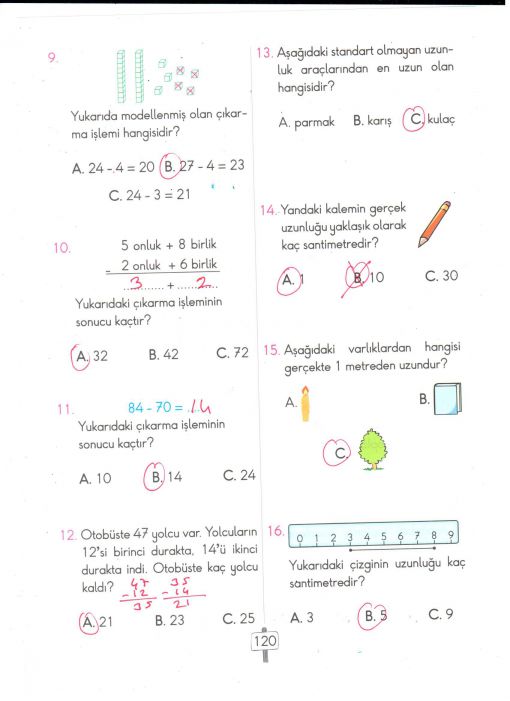 9.
Yukarıda modellenmiş olan çıkar-
ma işlemi hangisidir?
A. 24 - 4 = 20 B. 27 - 4 = 23
C. 24 - 3 = 21
10.
5 onluk + 8 birlik
- 2 onluk + 6 birlik
.....3..... + .....2.....
Yukarıdaki çıkarma işleminin
sonucu kaçtır?
A. 32 B. 42 C. 72
11. 84 - 70 = 14
Yukarıdaki çıkarma işleminin
sonucu kaçtır?
A. 10 B. 14 C. 24
12. Otobüste 47 yolcu var. Yolcuların
12'si birinci durakta, 14'ü ikinci
durakta indi. Otobüste kaç yolcu
kaldı?
47 35
-12 -14
35 21
A. 21 B. 23 C. 25
13. Aşağıdaki standart olmayan uzun-
luk araçlarından en uzun olan
hangisidir?
A. parmak B. karış C. kulaç
14. Yandaki kalemin gerçek
uzunluğu yaklaşık olarak
kaç santimetredir?
A. 1 B. 10 C. 30
15. Aşağıdaki varlıklardan hangisi
gerçekte 1 metreden uzundur?
A. B.
C.
16.
0 1 2 3 4 5 6 7 8 9
Yukarıdaki çizginin uzunluğu kaç
santimetredir?
A. 3 B. 5 C. 9
120